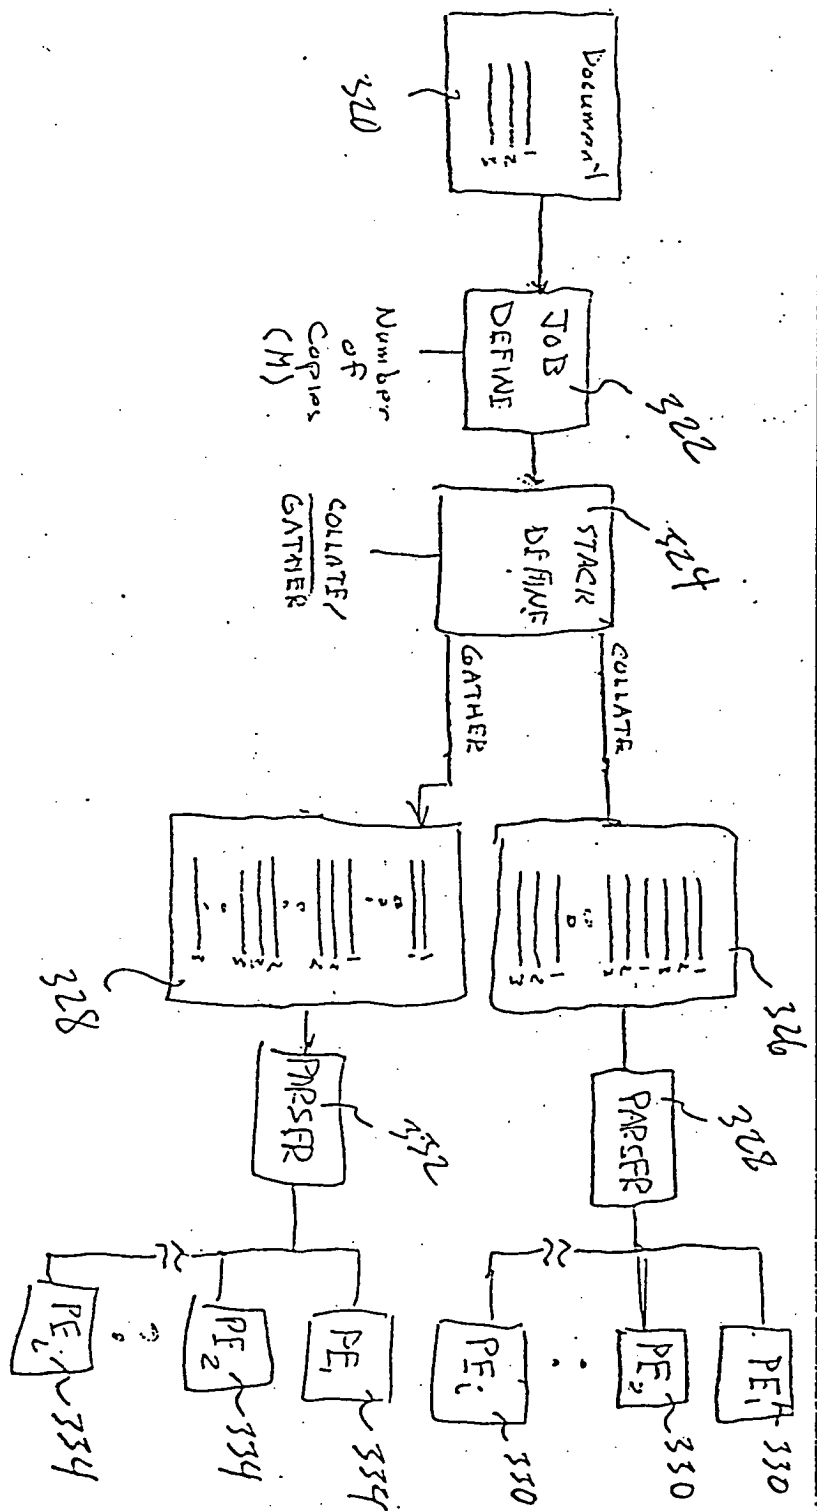 Document
1
2
3
320
JOB
DEFINE
322
Number
of
Copies
(M)
STACK
DEFINE
324
COLLATE/
GATHER
COLLATE
GATHER
1
2
3
1
2
3
1
2
3
326
1
1
1
2
2
2
2
3
3
328
PARSER
328
PARSER
332
PE1
330
PE2
330
PEi
330
PE1
334
PE2
334
PEi
334